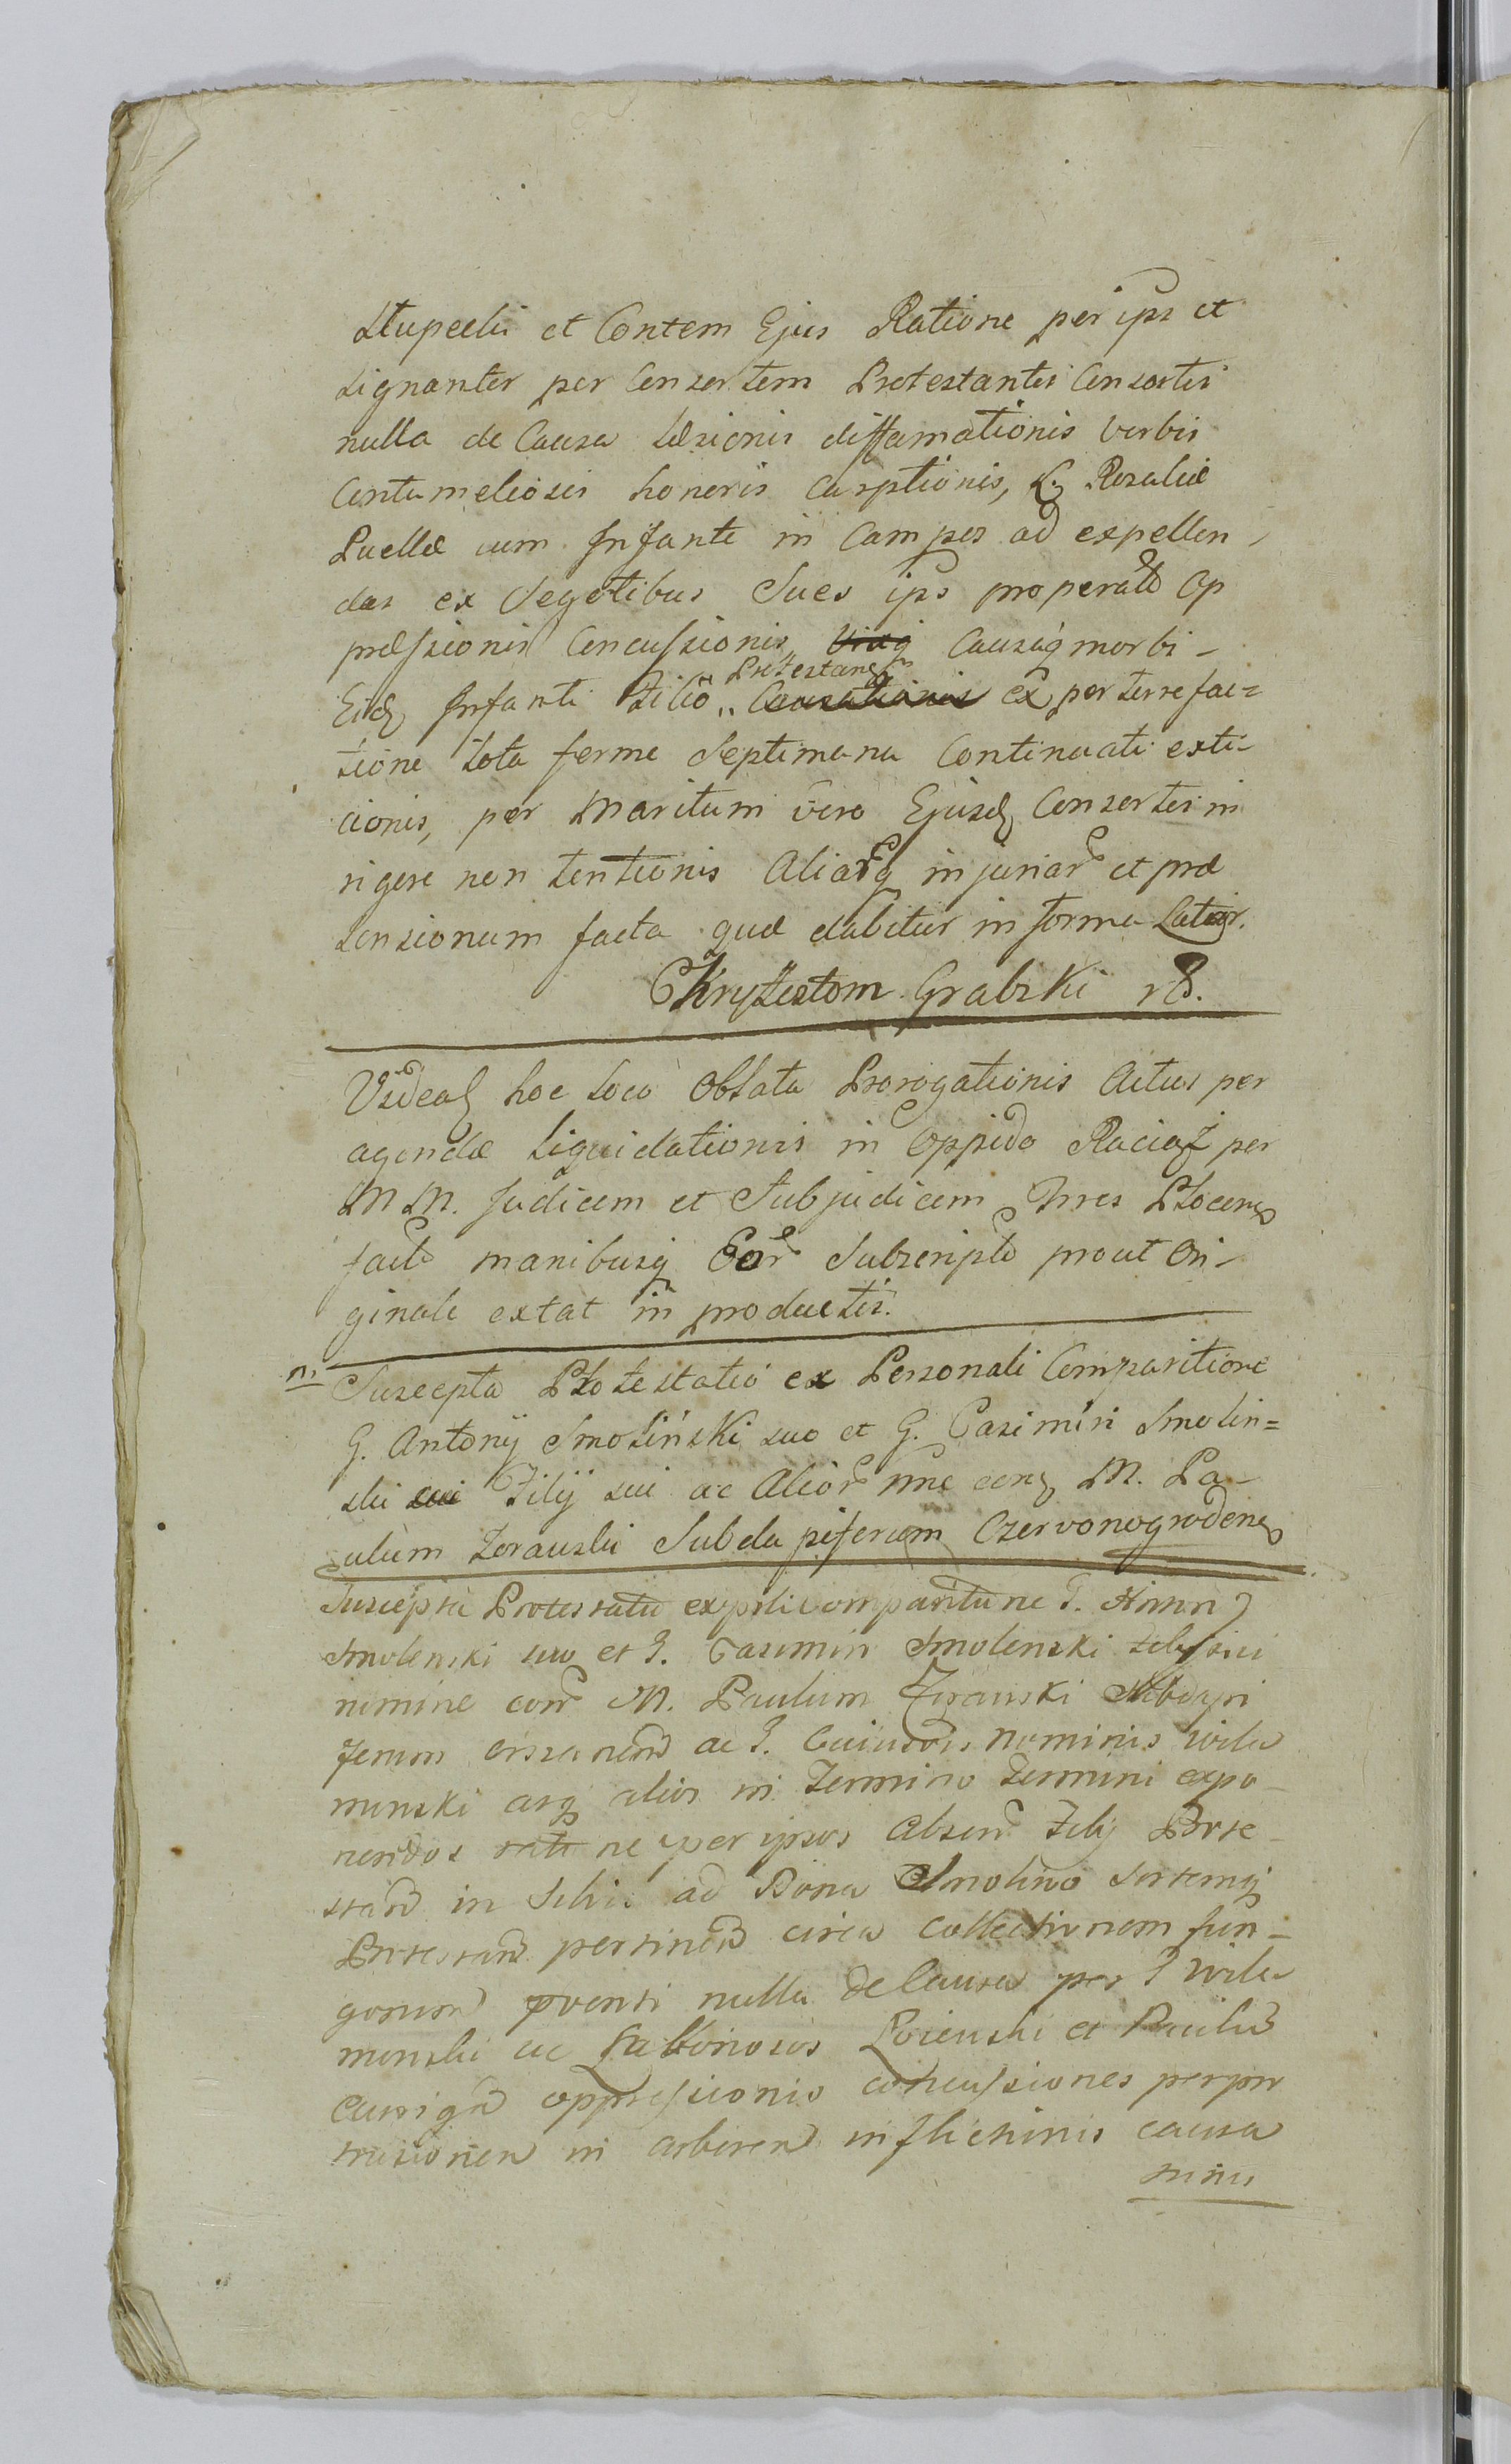 Stupecki et Contem Ejus Ratione per ips et
signanter per Consortem Protestantis Consortis
nulla de Causa læsionis diffamationis verbis
Contumeliosis honoris Carptionis, L. Rosaliæ
Puellæ cum Infante in Campos ad expellen,
das ex Segetibus Sues ips properatt Op
præssionis Concussionis, Causaq morbi -
Protestanѕ
Eid Infanti Filio ex perterrefac=
tione tota ferme Septimana Continuati exti-
cionis, per Maritum vero Ejusd Consortis in
rigore non tentionis Aliarq injuriar et præ
tensionum facta quæ dabitur in forma Latior.
Chryzostom Grabski
Videat hoc loco Oblata Prorogationis Actus per
agendæ Liquidationis in Oppido Raciąż per
M M. Judicem et Subjudicem Trres Plocens
facti manibusq Eor Subscripti prout Ori-
ginale extat in productis.
m
Suscepta Protestatio ex Personali Comparitione
G. Antonij Smoliński suo et G. Casimiri Smolin=
ski Filij sui ac Alior nne con M. Pa-
ulum Zorawski Subdapiferum Czervonogrodens
Suscepta Protestatio ex psli comparitione G. Anton
Smolenski suo et G. Casimiri Smolenski filij sui
nomine con M. Paulum Zorawski Subdapi
ferum ac G. Cuiusvis nominis Wila
mowski asq alios in Termino Termini expo-
nendos per ipsos Absen Filij Prote-
stan in Silvis ad Bona Smolino Sortemq
Protestan pertinen circa Collectionem fun-
gorum nulla de Causa per G Wila
mowski ac Laboriosos et
oppressionis concussiones perpe
trationem in arborem inflictionis causa